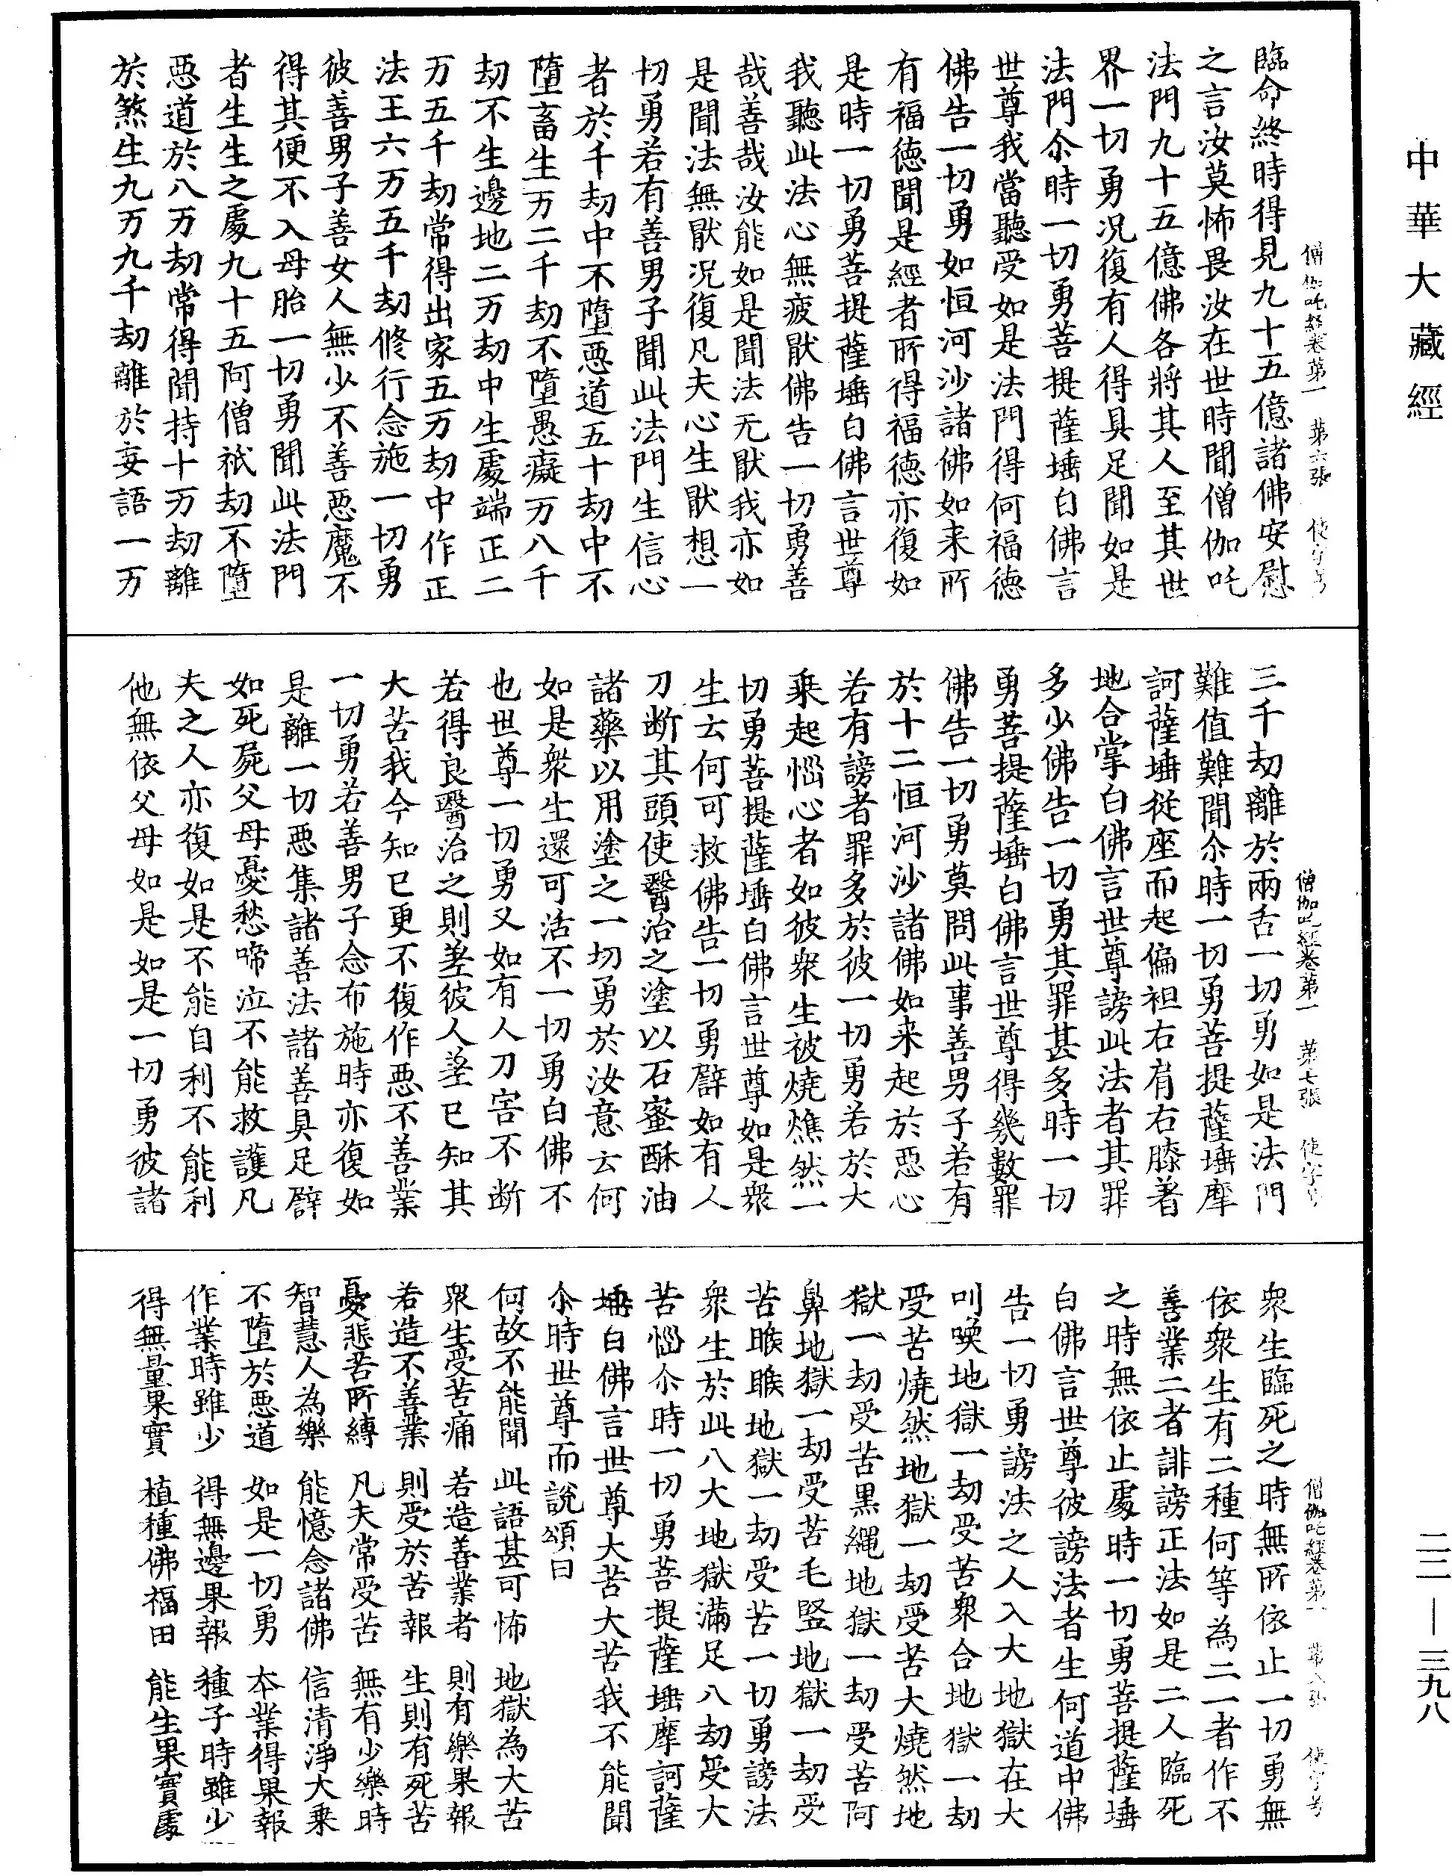 中華大藏經
僧伽吒經卷第一　第六張　使字号
臨命終時得見九十五億諸佛安慰
之言汝莫怖畏汝在世時聞僧伽吒
法門九十五億佛各將其人至其世
界一切勇況復有人得具足聞如是
法門尒時一切勇菩提薩埵白佛言
世尊我當聽受如是法門得何福德
佛告一切勇如恒河沙諸佛如来所
有福德聞是經者所得福德亦復如
是時一切勇菩提薩埵白佛言世尊
我聽此法心無疲猒佛告一切勇善
哉善哉汝能如是聞法无猒我亦如
是聞法無猒況復凡夫心生猒想一
切勇若有善男子聞此法門生信心
者於千劫中不墮惡道五十劫中不
墮畜生万二千劫不墮愚癡万八千
劫不生邊地二万劫中生處端正二
万五千劫常得出家五万劫中作正
法王六万五千劫修行念施一切勇
彼善男子善女人無少不善惡魔不
得其便不入母胎一切勇聞此法門
者生生之處九十五阿僧祇劫不墮
惡道於八万劫常得聞持十万劫離
於煞生九万九千劫離於妄語一万
僧伽吒經卷第一　第七張　使字号
三千劫離於兩舌一切勇如是法門
難值難聞尒時一切勇菩提薩埵摩
訶薩埵從座而起偏袒右肩右膝著
地合掌白佛言世尊謗此法者其罪
多少佛告一切勇其罪甚多時一切
勇菩提薩埵白佛言世尊得幾數罪
佛告一切勇莫問此事善男子若有
於十二恒河沙諸佛如来起於惡心
若有謗者罪多於彼一切勇若於大
乘起惱心者如彼衆生被燒燋然一
切勇菩提薩埵白佛言世尊如是衆
生云何可救佛告一切勇譬如有人
刀断其頭使醫治之塗以石蜜酥油
諸藥以用塗之一切勇於汝意云何
如是衆生還可活不一切勇白佛不
也世尊一切勇又如有人刀害不断
若得良醫治之則差彼人差已知其
大苦我今知已更不復作惡不善業
一切勇若善男子念布施時亦復如
是離一切惡集諸善法諸善具足譬
如死屍父母憂愁啼泣不能救護凡
夫之人亦復如是不能自利不能利
他無依父母如是如是一切勇彼諸
僧伽吒經卷第一　第八張　使字号
衆生臨死之時無所依止一切勇無
依衆生有二種何等為二一者作不
善業二者誹謗正法如是二人臨死
之時無依止處時一切勇菩提薩埵
白佛言世尊彼謗法者生何道中佛
告一切勇謗法之人入大地獄在大
叫喚地獄一劫受苦衆合地獄一劫
受苦燒然地獄一劫受苦大燒然地
獄一劫受苦黒繩地獄一劫受苦阿
鼻地獄一劫受苦毛竪地獄一劫受
苦睺睺地獄一劫受苦一切勇謗法
衆生於此八大地獄滿足八劫受大
苦惱尒時一切勇菩提薩埵摩訶薩
埵白佛言世尊大苦大苦我不能聞
尒時世尊而說頌曰
何故不能聞　此語甚可怖　地獄為大苦
衆生受苦痛　若造善業者　則有樂果報
若造不善業　則受於苦報　生則有死苦
憂悲苦所縛　凡夫常受苦　無有少樂時
智慧人為樂　能憶念諸佛　信清淨大乗
不墮於惡道　如是一切勇　本業得果報
作業時雖少　得無邊果報　種子時雖少
得無量果實　植種佛福田　能生果實處
二二—三九八